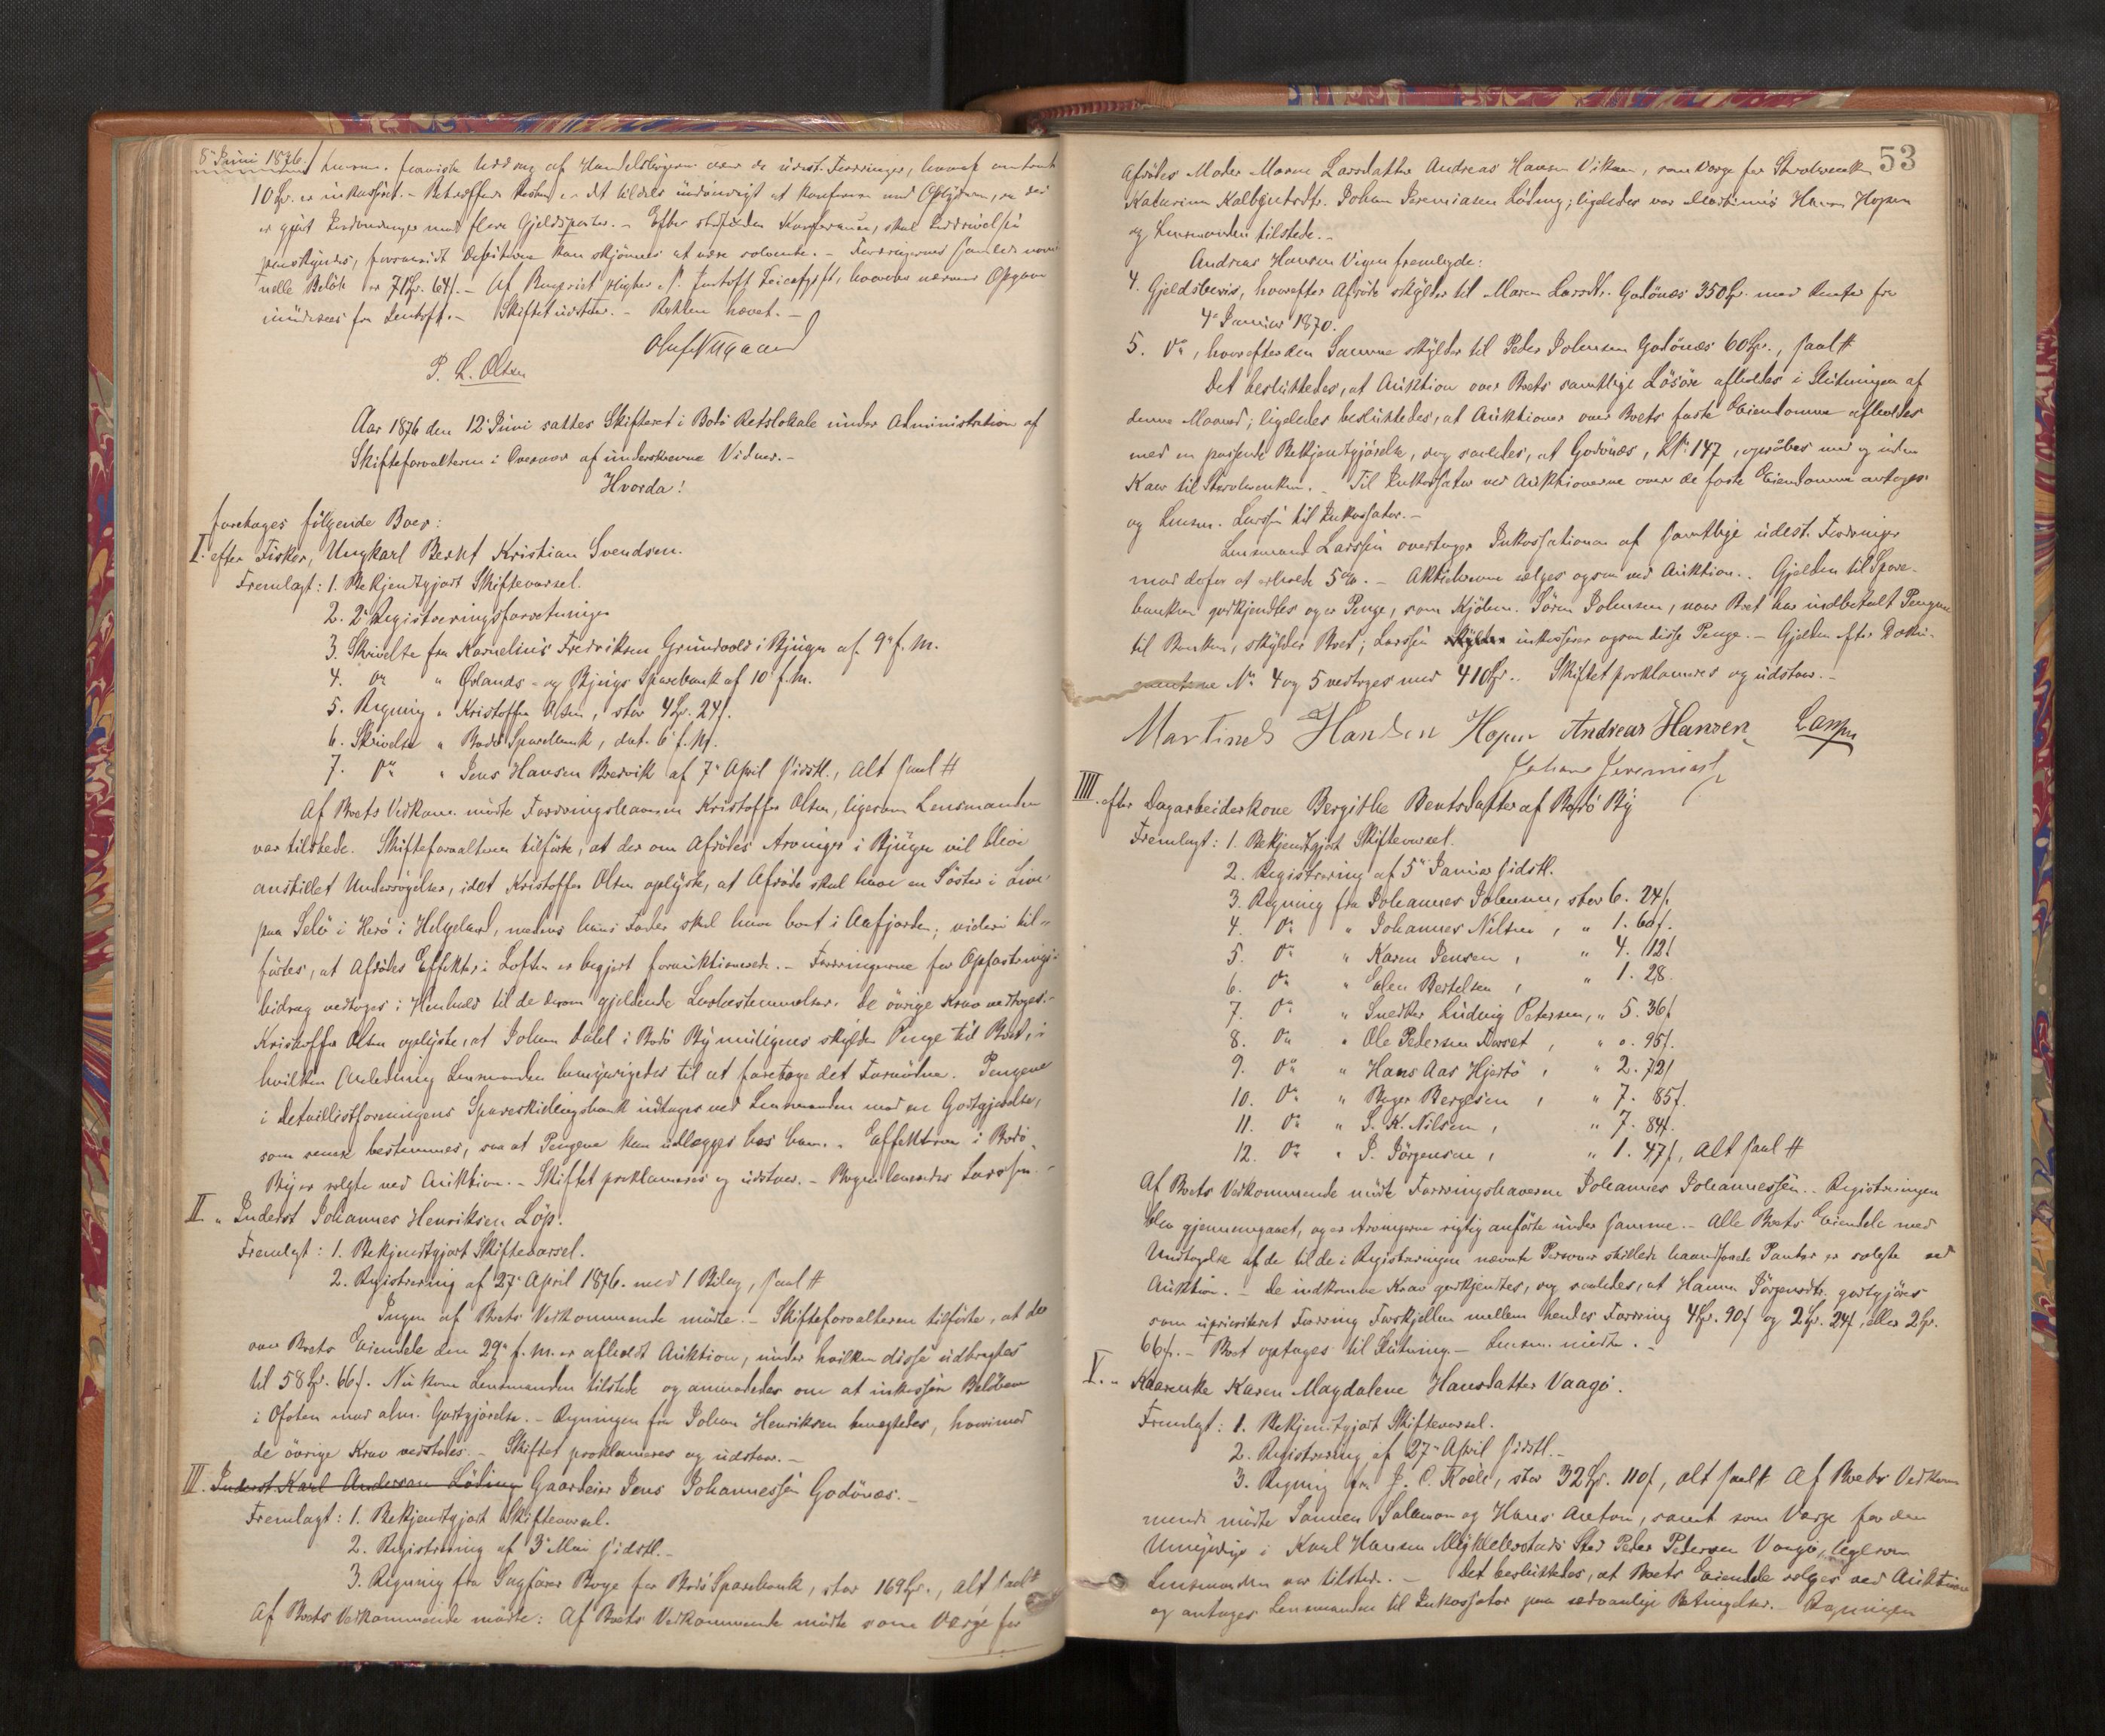 8de Juni 1876.
fremviste Uddrag af Handelsbøgerne over de udest. Fordringer, hvoraf
10 Sp. er inkasseret. - Betræffende Resten er det tildels nødvendigt at konferere med
er gjort Indvendinger mod flere Gjeldsposter. - Efter Konferance, skal Inddrivelsen
paaskyndes, forsaavidt Debitorerne kan skjønnes at være solvente. - Fordringernes samlede nomi-
nelle Beløb er 71 Sp. 64 s. - Af
imødesees fra Lentoft. - Skiftet udstaar. - Retten hævet. -
P. L. Olsen
Aar 1876 den 12te Juni sattes Skifteret i Bodø Retslokale under Administration af
Skifteforvalteren i Overvær af underskrevne Vidner. -
Hvorda!
foretages følgende Boer:
I. efter Fisker, Ungkarl Bernt Kristian Svendsen.
Fremlagt: 1. Bekjendtgjort Skiftevarsel.
2. 2de Registreringsforretninger
3. Skrivelse fra Kornelius Fredriksen Grundvold i Bjugn af 9de f. M.
4. Do " Ørlands- og Bjugns Sparebank af 10de f. M.
5. Regning " Kristoffer Olsen, stor 4 Sp. 24 s.
6. Skrivelse " Bodø Sparebank, dat. 6te f. M.
7. Do " Jens Hansen Bredvik af 7de April sidstl., Alt saal #
Af Boets Vedkom. mødte Fordringshaveren Kristoffer Olsen, ligesom Lensmanden
var tilstede. Skifteforvalteren tilførte, at der om Afdødes Arvinger i Bjugn vil blive
anstillet Undersøgelser, idet Kristoffer Olsen oplyste, at Afdøde skal have en Søster i Live
paa Selø i Herø i Helgeland, medens hans Fader skal have boet i Aafjorden; videre til-
førtes, at Afdødes Effekter i Lofoten er begjært forauktionerede. - Fordringerne for Opfostrings-
bidrag vedtoges i Henhold til de derom gjeldende Lovbestemmelser. De øvrige Krav vedtoges. -
Kristoffer Olsen oplyste, at Johan Dahl i Bodø By muligens skylder Penge til Boet, i
hvilken Anledning Lensmanden bemyndigedes til at foretage det Fornødne. Pengene
i Detaillistforeningens Spareskillingsbank indtages ved Lensmanden mod en Godtgjørelse,
som senere bestemmes, saa at Pengene kan udlægges hos ham. - Effekterne i Bodø
By er solgte ved Auktion. - Skiftet proklameres og udstaar. - Bogen Larssen. -
II. " Inderst Johannes Henriksen Løp.
Fremlagt: 1. Bekjendtgjort Skiftevarsel.
2. Registrering af 27de April 1876. med 1 Bilag, saal #
Ingen af Boets Vedkommende mødte. - Skifteforvalteren tilførte, at der
over Boets Eiendele den 29de f. M. er afholdt Auktion, under hvilken disse udbragtes
til 58 Sp. 66 s. Nu kom Lensmanden tilstede og anmodedes om at inkassere Beløbene
i Ofoten mod alm. Godtgjørelse. - Regningen fra Johan Henriksen benegtedes, hvorimod
de øvrige Krav vedtoges. - Skiftet proklameres og udstaar. -
III. Inderst Karl Andersen Løding Gaardeier Jens Johannessen Godønæs. -
Fremlagt: 1. Bekjendtgjort Skiftevarsel.
2. Registrering af 3de Mai sidstl. -
3. Regning fra Sagfører Boye for Bodø Sparebank, stor 169 Sp., alt saal #
Af Boets Vedkommende mødte: Af Boets Vedkommende mødte som Verge for
53
Afdødes Moder Maren Larsdatter Andreas Hansen Viken, som Verge for Stervboenken
Katarina Kolbjørnsdtr. Johan Jeremiasen Løding; ligeledes var Martinus Hansen Hopen
og Lensmanden tilstede. -
Andreas Hansen Vigen fremlagde:
4. Gjeldsbevis, hvorefter Afdøde skylder til Maren Larsdtr. Godønæs 350 Sp. med Renter fra
4de Januar 1870.
5. Do, hvorefter den Samme skylder til Peder Johnsen Godønæs 60 Sp., saal #
Det besluttedes, at Auktion over Boets samtlige Løsøre afholdes i Slutningen af
denne Maaned; ligeledes besluttedes, at Auktioner over Boets faste Eiendomme afholdes
med en passende Bekjendtgjørelse, dog saaledes, at Godønæs, L.No. 147, opraabes med og uden
Kaar til Stervboenken. - Til Inkassator ved Auktionerne over de faste Eiendomme antoges
og Lensm. Larssen til Inkassator. -
Lensmand Larssen overtager Inkassationen af samtlige udest. Fordringer
mod derfor at erholde 5%. - Aktiebrevene sælges ogsaa ved Auktion. - Gjelden til Spare-
banken godkjendtes og er Penge, som Kjøbm. Søren Johnsen, naar Boet har indbetalt Pengene
til Banken, skylder Boet; Larssen skylder inkasserer ogsaa disse Penge. - Gjelden efter Doku-
menterne No. 4 og 5 vedtoges med 410 Sp. Skiftet proklameres og udstaar. -
Martinus Hansen Hopen Andreas Hansen Larssen
Johan Jeremiass.
IIII. efter Dagarbeiderkone Bergithe Berntsdatter af Bodø By
Fremlagt: 1. Bekjendtgjort Skiftevarsel.
2. Registrering af 5te Januar sidstl.
3. Regning fra Johannes Johnsen, stor 6. 24 s.
4. Do " Johannes Nilsen, " 1. 60 s.
5. Do " Karen Jensen, " 4. 12 s
6. Do " Elen Bertelsen, " 1. 28
7. Do " Snedker Ludvig Petersen, " 5. 36 s
8. Do " Ole Pedersen Norset, " 0. 95 s.
9. Do " Hans Aas Hjertø, " 2. 72 s
10. Do " Beger Bergesen, " 7. 85 s.
11. Do " S. K. Nilsen, " 7. 84 s.
12. Do " P. Jørgensen, " 1. 47 s, alt saal #
Af Boets Vedkommende mødte Fordringshaverne Johannes Johannessen. - Registreringen
blev gjennemgaaet, og er Arvingerne rigtig anførte under samme. - Alle Boets Eiendele med
Undtagelse af de til de i Registreringen nævnte Personer stillede haandfaaede Panter er solgte ved
Auktion. - De indkomne Krav godkjendtes, dog saaledes, at Hanna Jørgensdtr. godtgjøres
som uprioriteret Fordring Forskjellen mellem hendes Fordring 4 Sp. 90 s og 2 Sp. 24 s, eller 2 Sp.
66 s. - Boet optages til Slutning. - Lensm. mødte. -
V. " Kaarenke Karen Magdalene Hansdatter Vaagø.
Fremlagt: 1. Bekjendtgjort Skiftevarsel.
2. Registrering af 27de April sidstl. -
3. Regning fra J. C. Koch, stor 32 Sp. 110 s, alt saal # Af Boets Vedkom-
mende mødte Sønnen Salamon og Hans Anton, samt som Verge for den
Umyndige i Karl Hansen Myklebostads Sted Peder Pedersen Vaagø, ligesom
Lensmanden var tilstede. - Det besluttedes, at Boets Eiendele sælges ved Auktion
og antages Lensmanden til Inkassator paa sædvanlige Betingelser. - Regningen